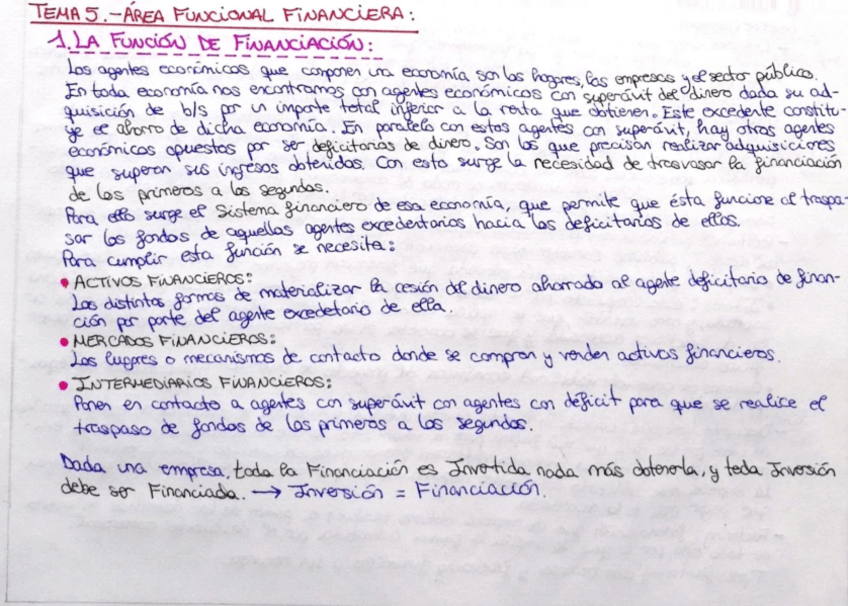 TEMA 5.-ÁREA FUNCIONAL FINANCIERA:
1. LA FUNCIÓN DE FINANCIACIÓN:
Los agentes económicos que componen una economía son los hogares, las empresas y el sector público.
En toda economía nos encontramos con agentes económicos con superávit del dinero dada su ad-
quisición de b/s por un importe total inferior a la renta que obtienen. Este excedente constitu-
ye el ahorro de dicha economía. En paralelo con estos agentes con superávit, hay otros agentes
económicos opuestos por ser deficitarios de dinero. Son los que precisan realizar adquisiciones
que superan sus ingresos obtenidos. Con esto surge la necesidad de trasvasar la financiación
de los primeros a los segundos.
Para ello surge el Sistema financiero de esa economía, que permite que ésta funcione al traspa-
sar los fondos de aquellos agentes excedentarios hacia los deficitarios de ellos.
Para cumplir esta función se necesita:
• ACTIVOS FINANCIEROS:
Las distintas formas de materializar la cesión del dinero ahorrado al agente deficitario de finan-
ción por parte del agente excedetario de ella.
• MERCADOS FINANCIEROS:
Los lugares o mecanismos de contacto donde se compran y venden activos financieros.
• INTERMEDIARIOS FINANCIEROS:
Ponen en contacto a agentes con superávit con agentes con déficit para que se realice el
traspaso de fondos de los primeros a los segundos.
Dada una empresa, toda la Financiación es Invertida nada más obtenerla, y toda Inversión
debe ser Financiada. → Inversión = Financiación.